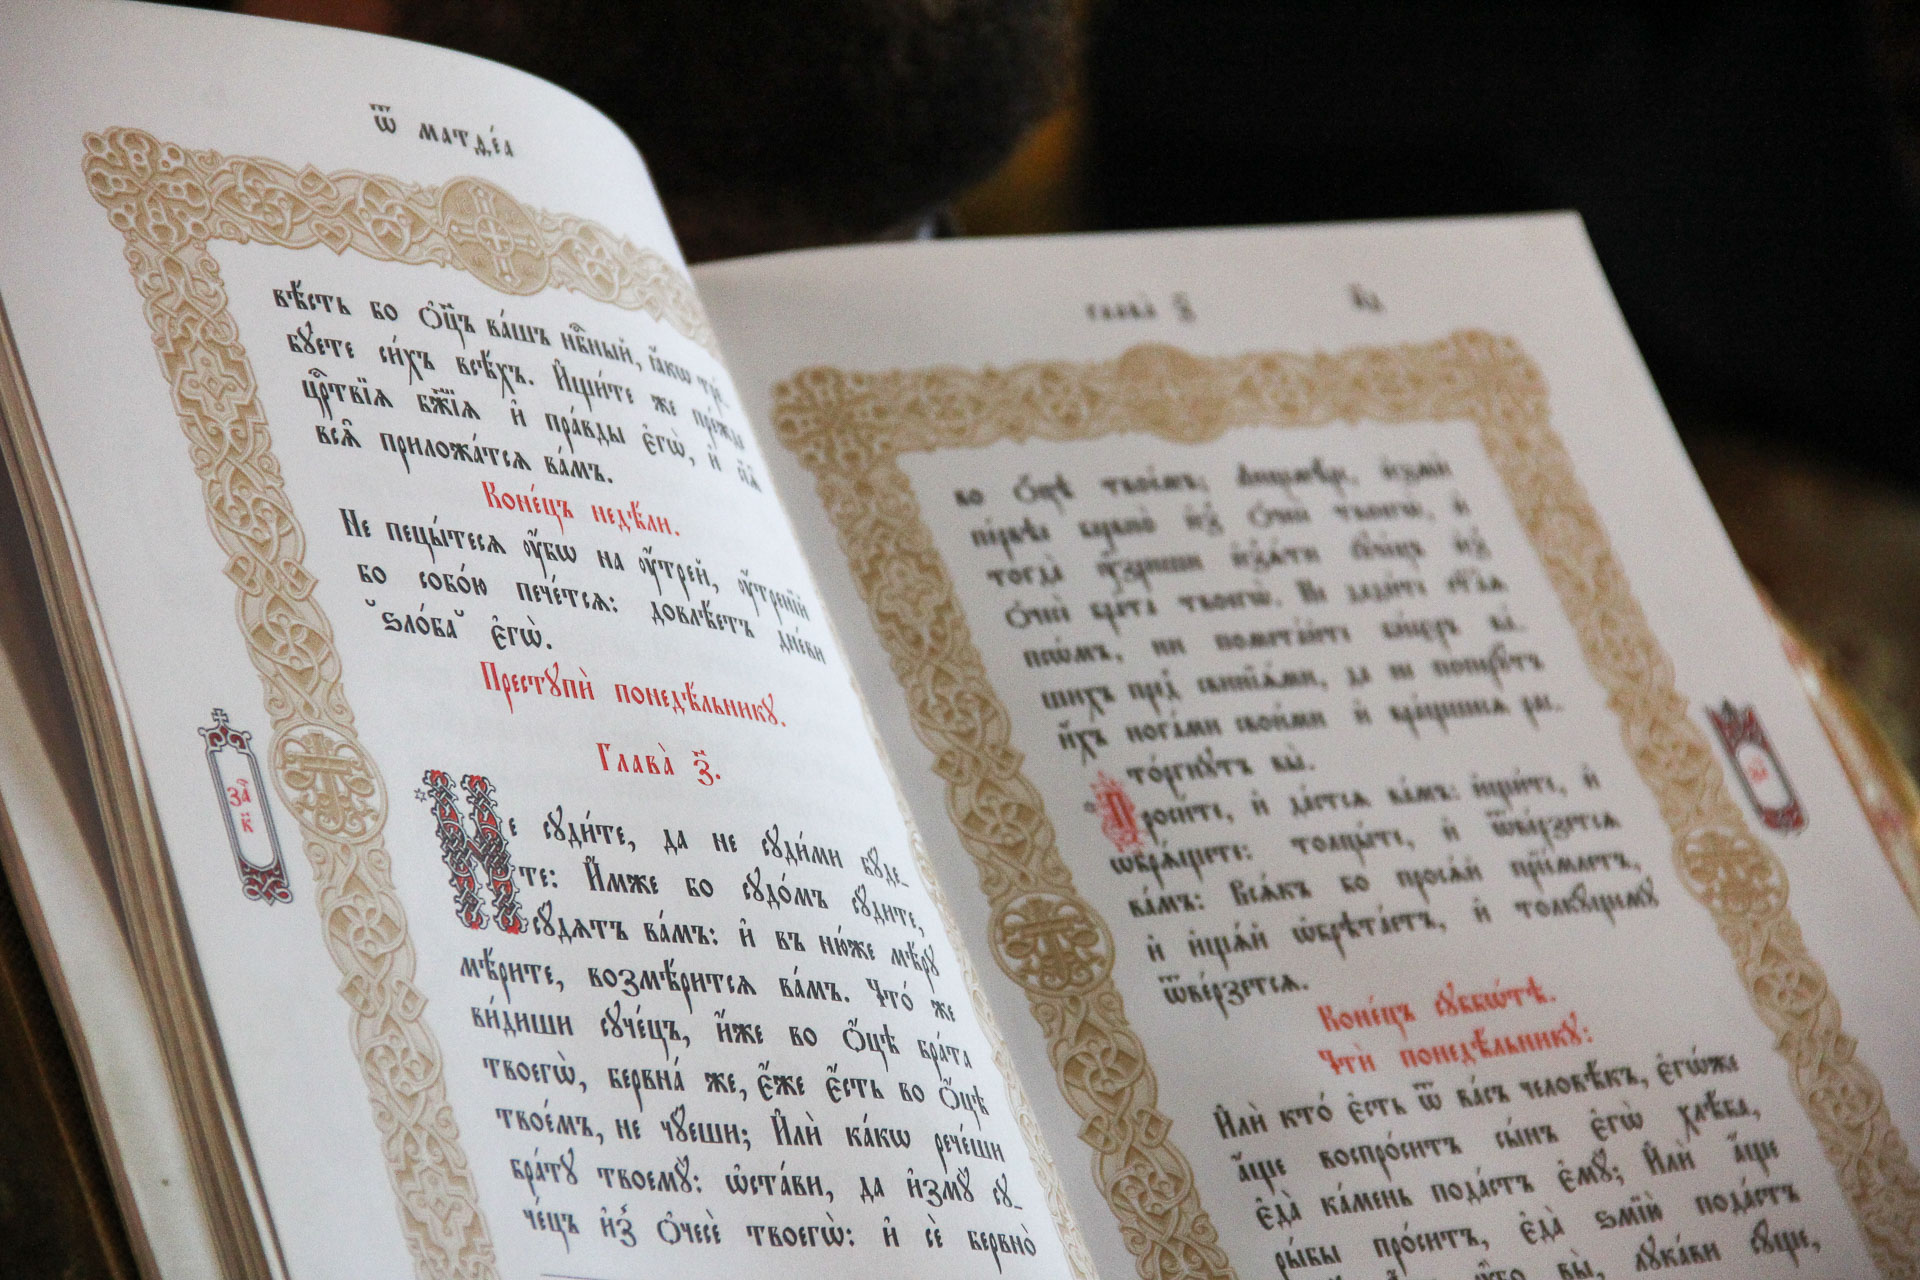 Ѿ матѳе́а
вѣ́сть бо ѻ҆ц҃ъ ва́шъ нбⷭ҇ный, ꙗ҆́кѡ тре́-
буете си́хъ всѣ́хъ. И҆щи́те же пре́жде
црⷭ҇твїѧ бж҃їѧ и҆ пра́вды є҆гѡ̀, и҆ сїѧ̑
всѧ̑ приложа́тсѧ ва́мъ.
Коне́цъ недѣ́ли.
Не пецы́тесѧ ᲂу҆̀бѡ на ᲂу҆́трей, ᲂу҆́тренїй
бо собо́ю пече́тсѧ: довлѣ́етъ дне́ви
ѕло́ба є҆гѡ̀.
Престꙋпѝ понедѣ́льникꙋ.
Глава̀ з҃.
За҄ к҃
Не сꙋди́те, да не сꙋди́ми бꙋ́де-
те: И҆́мже бо сꙋдо́мъ сꙋ́дите,
сꙋ́дѧтъ ва́мъ: и҆ въ ню́же мѣ́рꙋ
мѣ́рите, возмѣ́ритсѧ ва́мъ. Что́ же
ви́диши сꙋче́цъ, и҆́же во ѻ҆́цѣ бра́та
твоегѡ̀, бервна́ же, є҆́же є҆́сть во ѻ҆́цѣ
твое́мъ, не чꙋ́еши; И҆лѝ ка́кѡ рече́ши
бра́тꙋ твоемꙋ̀: ѡ҆ста́ви, да и҆змꙋ̀ сꙋ-
че́цъ и҆з̾ ѻ҆чесѐ твоегѡ̀: и҆ сѐ бервно̀
глава̀ з҃
во ѻ҆́цѣ твое́мъ; Лицемѣ́ре, и҆змѝ
пе́рвѣе бервно̀ и҆з̾ ѻ҆чесѐ твоегѡ̀, и҆
тогда̀ ᲂу҆́зриши и҆з̾ѧ́ти сꙋче́цъ и҆з̾
ѻ҆чесѐ бра́та твоегѡ̀. Не дади́те ст҃а̑ѧ
псѡ́мъ, ни помета́йте би́серъ ва́-
шихъ пред̾ свинїѧ́ми, да не поперꙋ́тъ
и҆́хъ нога́ми свои́ми и҆ вра́щшесѧ рас-
то́ргнꙋтъ вы̀.
Проси́те, и҆ да́стсѧ ва́мъ: и҆щи́те, и҆
ѡ҆брѧ́щете: толцы́те, и҆ ѿве́рзетсѧ
ва́мъ: Всѧ́къ бо просѧ́й прїе́млетъ,
и҆ и҆щѧ́й ѡ҆брѣта́етъ, и҆ толкꙋ́щемꙋ
ѿве́рзетсѧ.
Коне́цъ сꙋббѡ́тѣ.
Чтѝ понедѣ́льникꙋ:
И҆лѝ кто́ є҆сть ѿ ва́съ человѣ́къ, є҆гѡ́же
а҆́ще воспро́ситъ сы́нъ є҆гѡ̀ хлѣ́ба,
є҆да̀ ка́мень пода́стъ є҆мꙋ̀; И҆лѝ а҆́ще
ры́бы про́ситъ, є҆да̀ ѕмїю̀ пода́стъ
вы̀, лꙋка́ви сꙋ́ще,